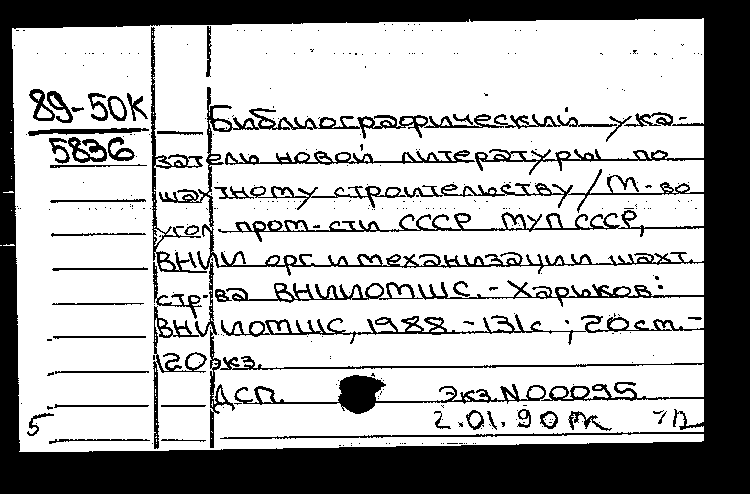 89-50К
5836
Библиографический ука-
затель новой литературы по
шахтному строительству / М-во
угол. пром-сти СССР МУП СССР,
ВНИИ орг. и механизации шахт.
стр-ва ВНИИОМШС. - Харьков:
ВНИИОМШС, 1988. - 131 с. ; 20 см. -
120 экз.
ДСП. Экз. N 00095.
5 2.01.90